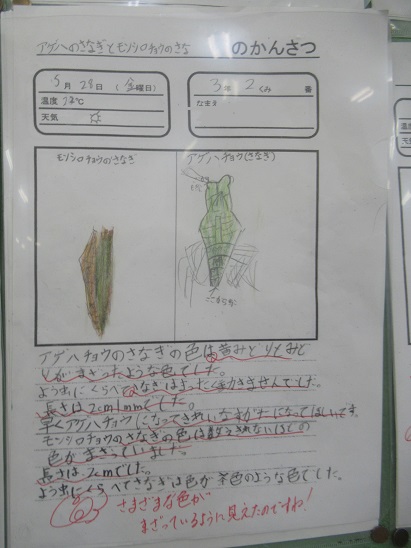 アゲハのさなぎとモンシロチョウのさな のかんさつ
5月28日(金曜日)
温度
天気
3年2くみ 番
なまえ
モンシロチョウのさなぎ
アゲハチョウ(さなぎ)
アゲハチョウのさなぎの色は黄みどりとみど
りがまざったような色でした。
よう虫にくらべさなぎはまったく動きませんでした。
長さは2cm1mmでした。
早くアゲハチョウになってきれいなすがたになってほしいです。
モンシロチョウのさなぎの色は数えきれないほどの
色がまざっていました。
長さは2cmでした。
よう虫にくらべてさなぎは色が茶色のような色でした。
さまざまな色が
まざっているように見えたのですね!